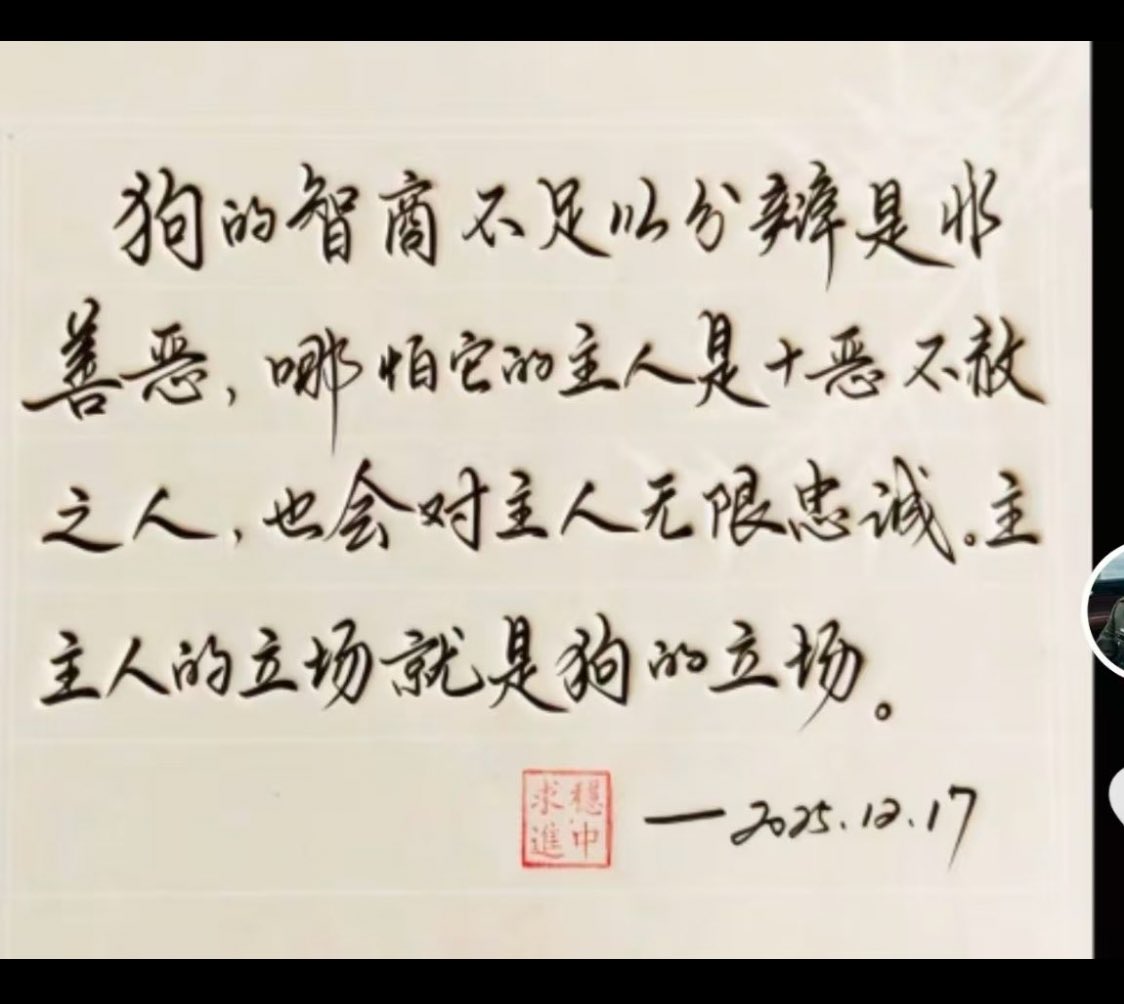 狗的智商不足以分辩是非
善恶，哪怕它的主人是十恶不赦
之人，也会对主人无限忠诚。主
主人的立场就是狗的立场。
稳中
求進
—2025.12.17